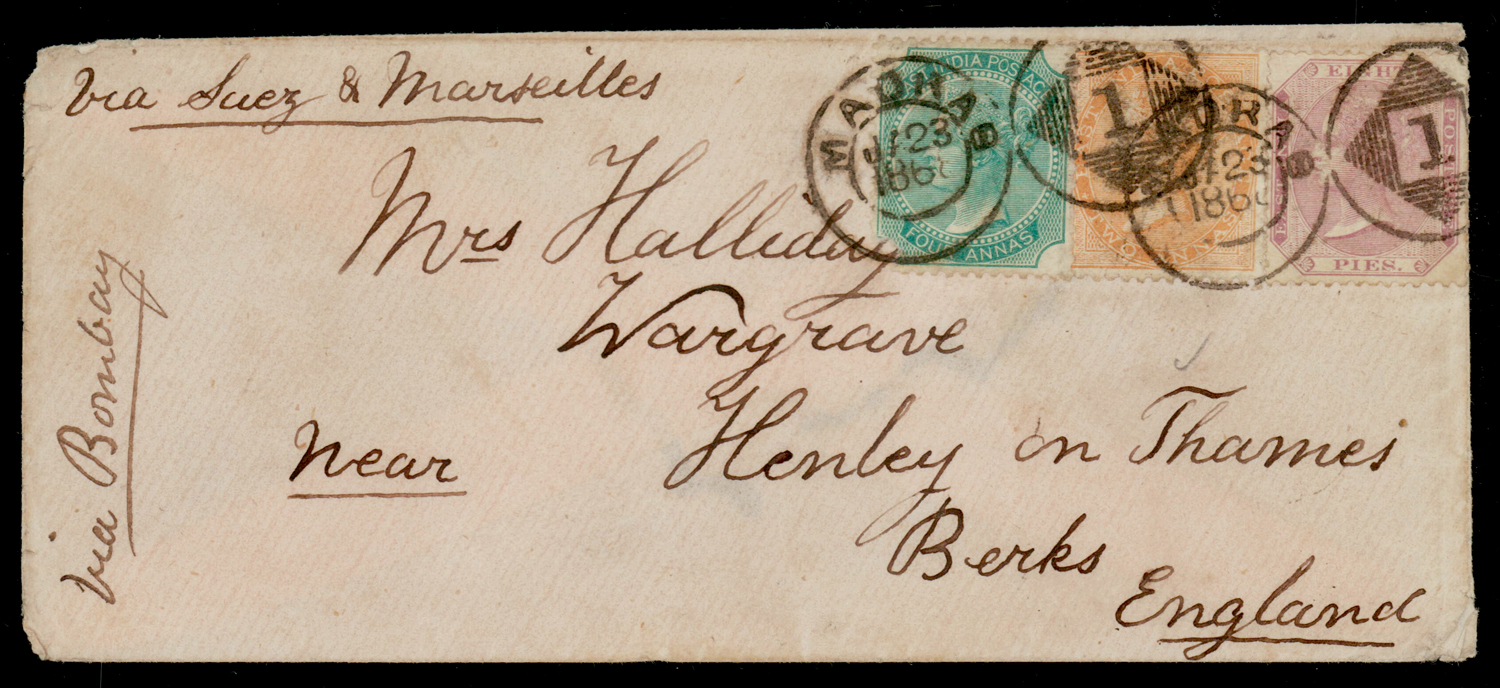 via Suez & Marseilles
INDIA POSTAGE
FOUR ANNAS
MADRAS
23
1
ANNAS
23
1
EIGHT
PIES.
Mrs Halliday
Wargrave
near Henley on Thames
Berks
England
via Bombay